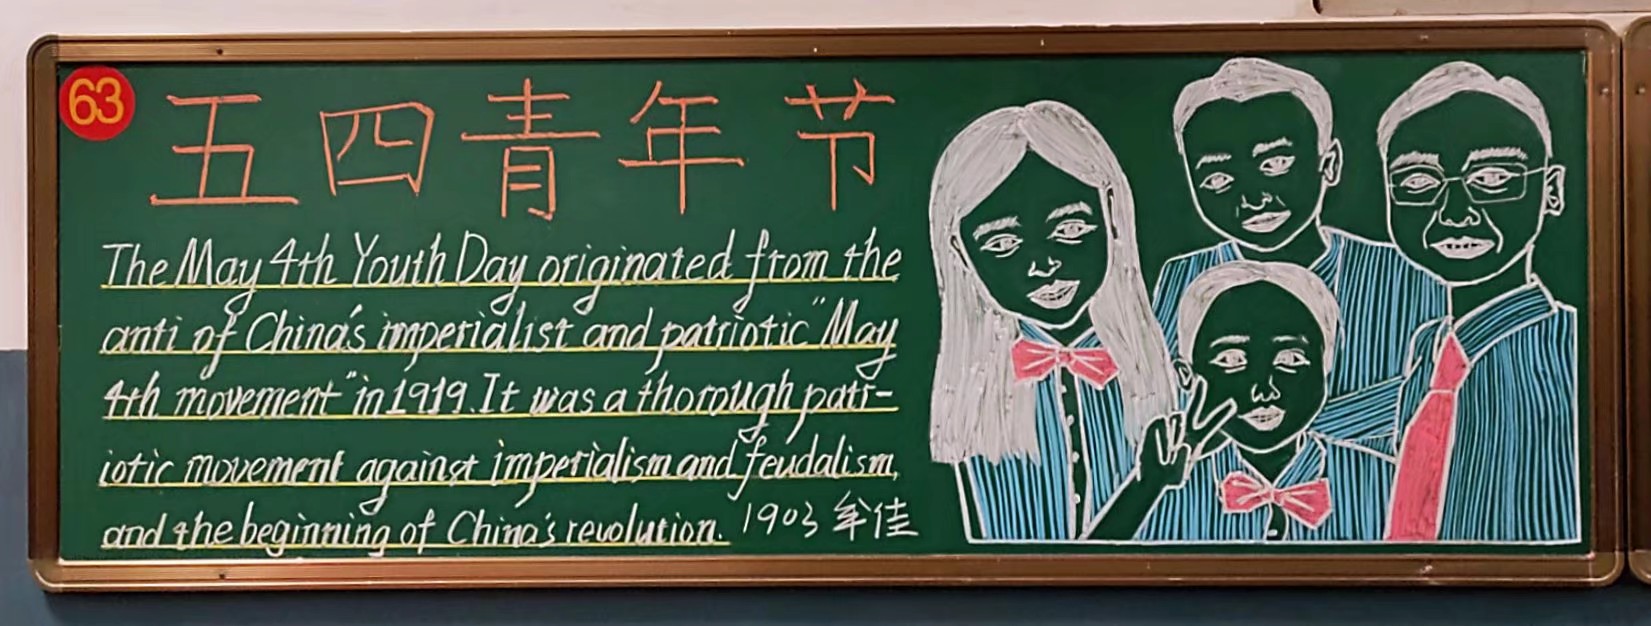 63
五四青年节
The May 4th Youth Day originated from the
anti of China's imperialist and patriotic "May
4th movement" in 1919. It was a thorough patr-
iotic movement against imperialism and feudalism,
and the beginning of China's revolution. 1903 佳